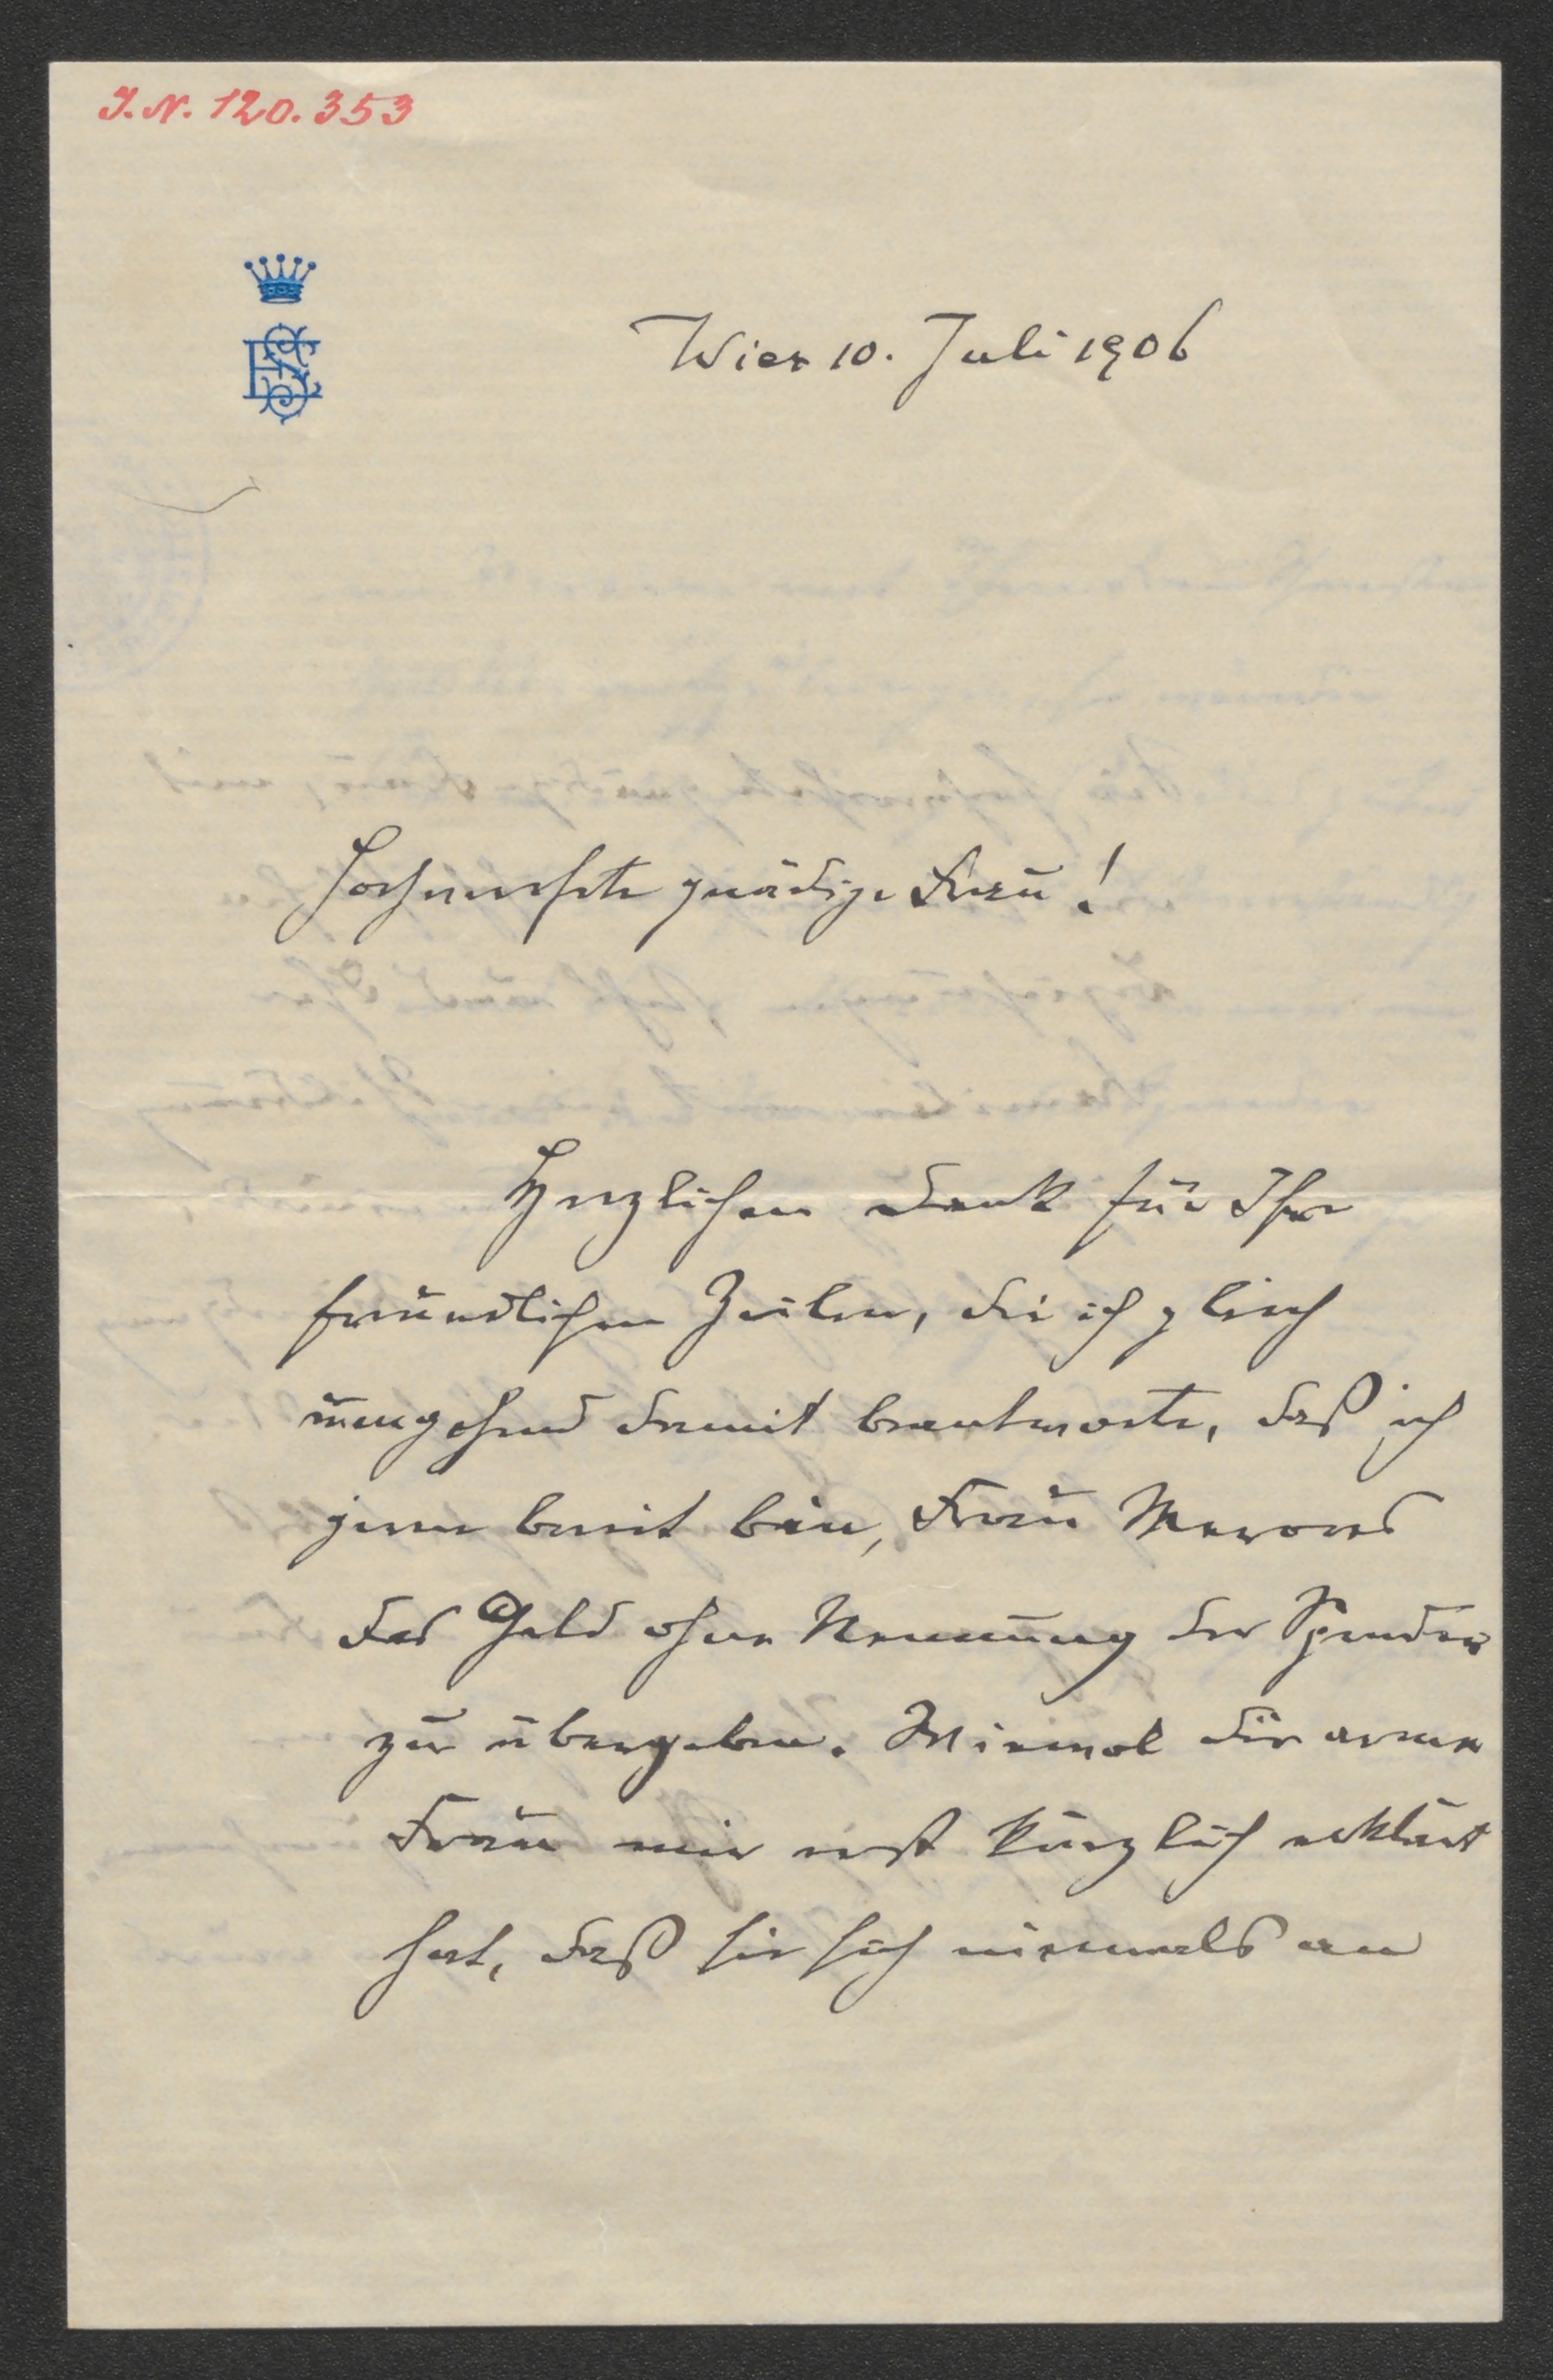 I.N. 120.353
ES
Wien 10. Juli 1906
Hochverehrte gnädige Frau!
Herzlichen Dank für Ihre
freundlichen Zeilen, die ich gleich
umgehend damit beantworte, daß ich
gerne bereit bin, Frau
das Geld ohne Nennung der Spender
zu übergeben. die arme
Frau mir erst kürzlich erklärt
hat, daß sie sich niemals an